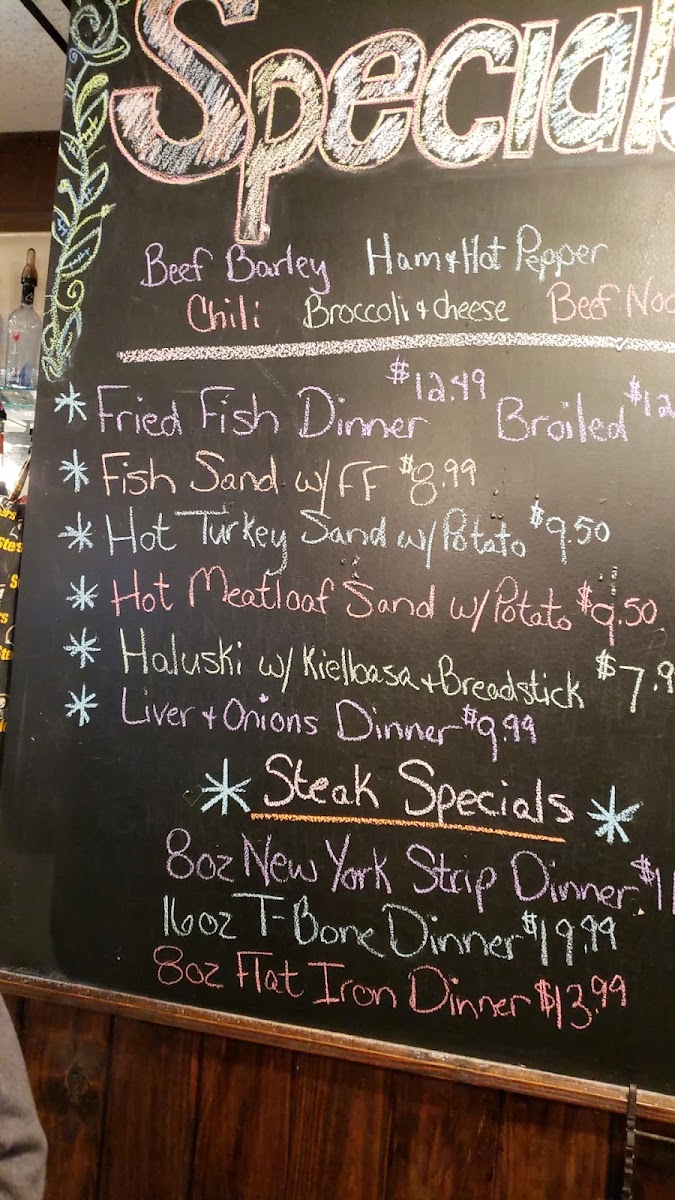 Specials
Beef Barley Ham & Hot Pepper
Chili Broccoli & cheese Beef Noo
* Fried Fish Dinner $12.49 Broiled $12
* Fish Sand w/ FF $8.99
* Hot Turkey Sand w/ Potato $9.50
* Hot Meatloaf Sand w/ Potato $9.50
* Haluski w/ Kielbasa & Breadstick $7.9
* Liver & Onions Dinner $9.99
* Steak Specials *
8oz New York Strip Dinner $1
16oz T-Bone Dinner $19.99
8oz Flat Iron Dinner $13.99